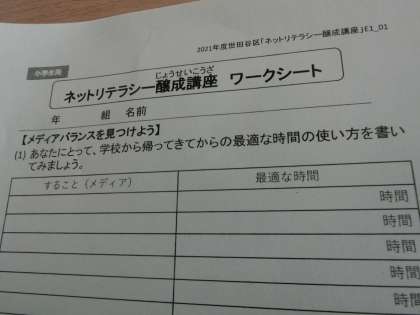 2021年度世田谷区「ネットリテラシー醸成講座」E1_01
小学生用
じょうせいこうざ
ネットリテラシー醸成講座 ワークシート
年 組 名前
【メディアバランスを見つけよう】
(1) あなたにとって、学校から帰ってきてからの最適な時間の使い方を書い
てみましょう。
すること（メディア） 最適な時間
時間
時間
時間
時間
時間